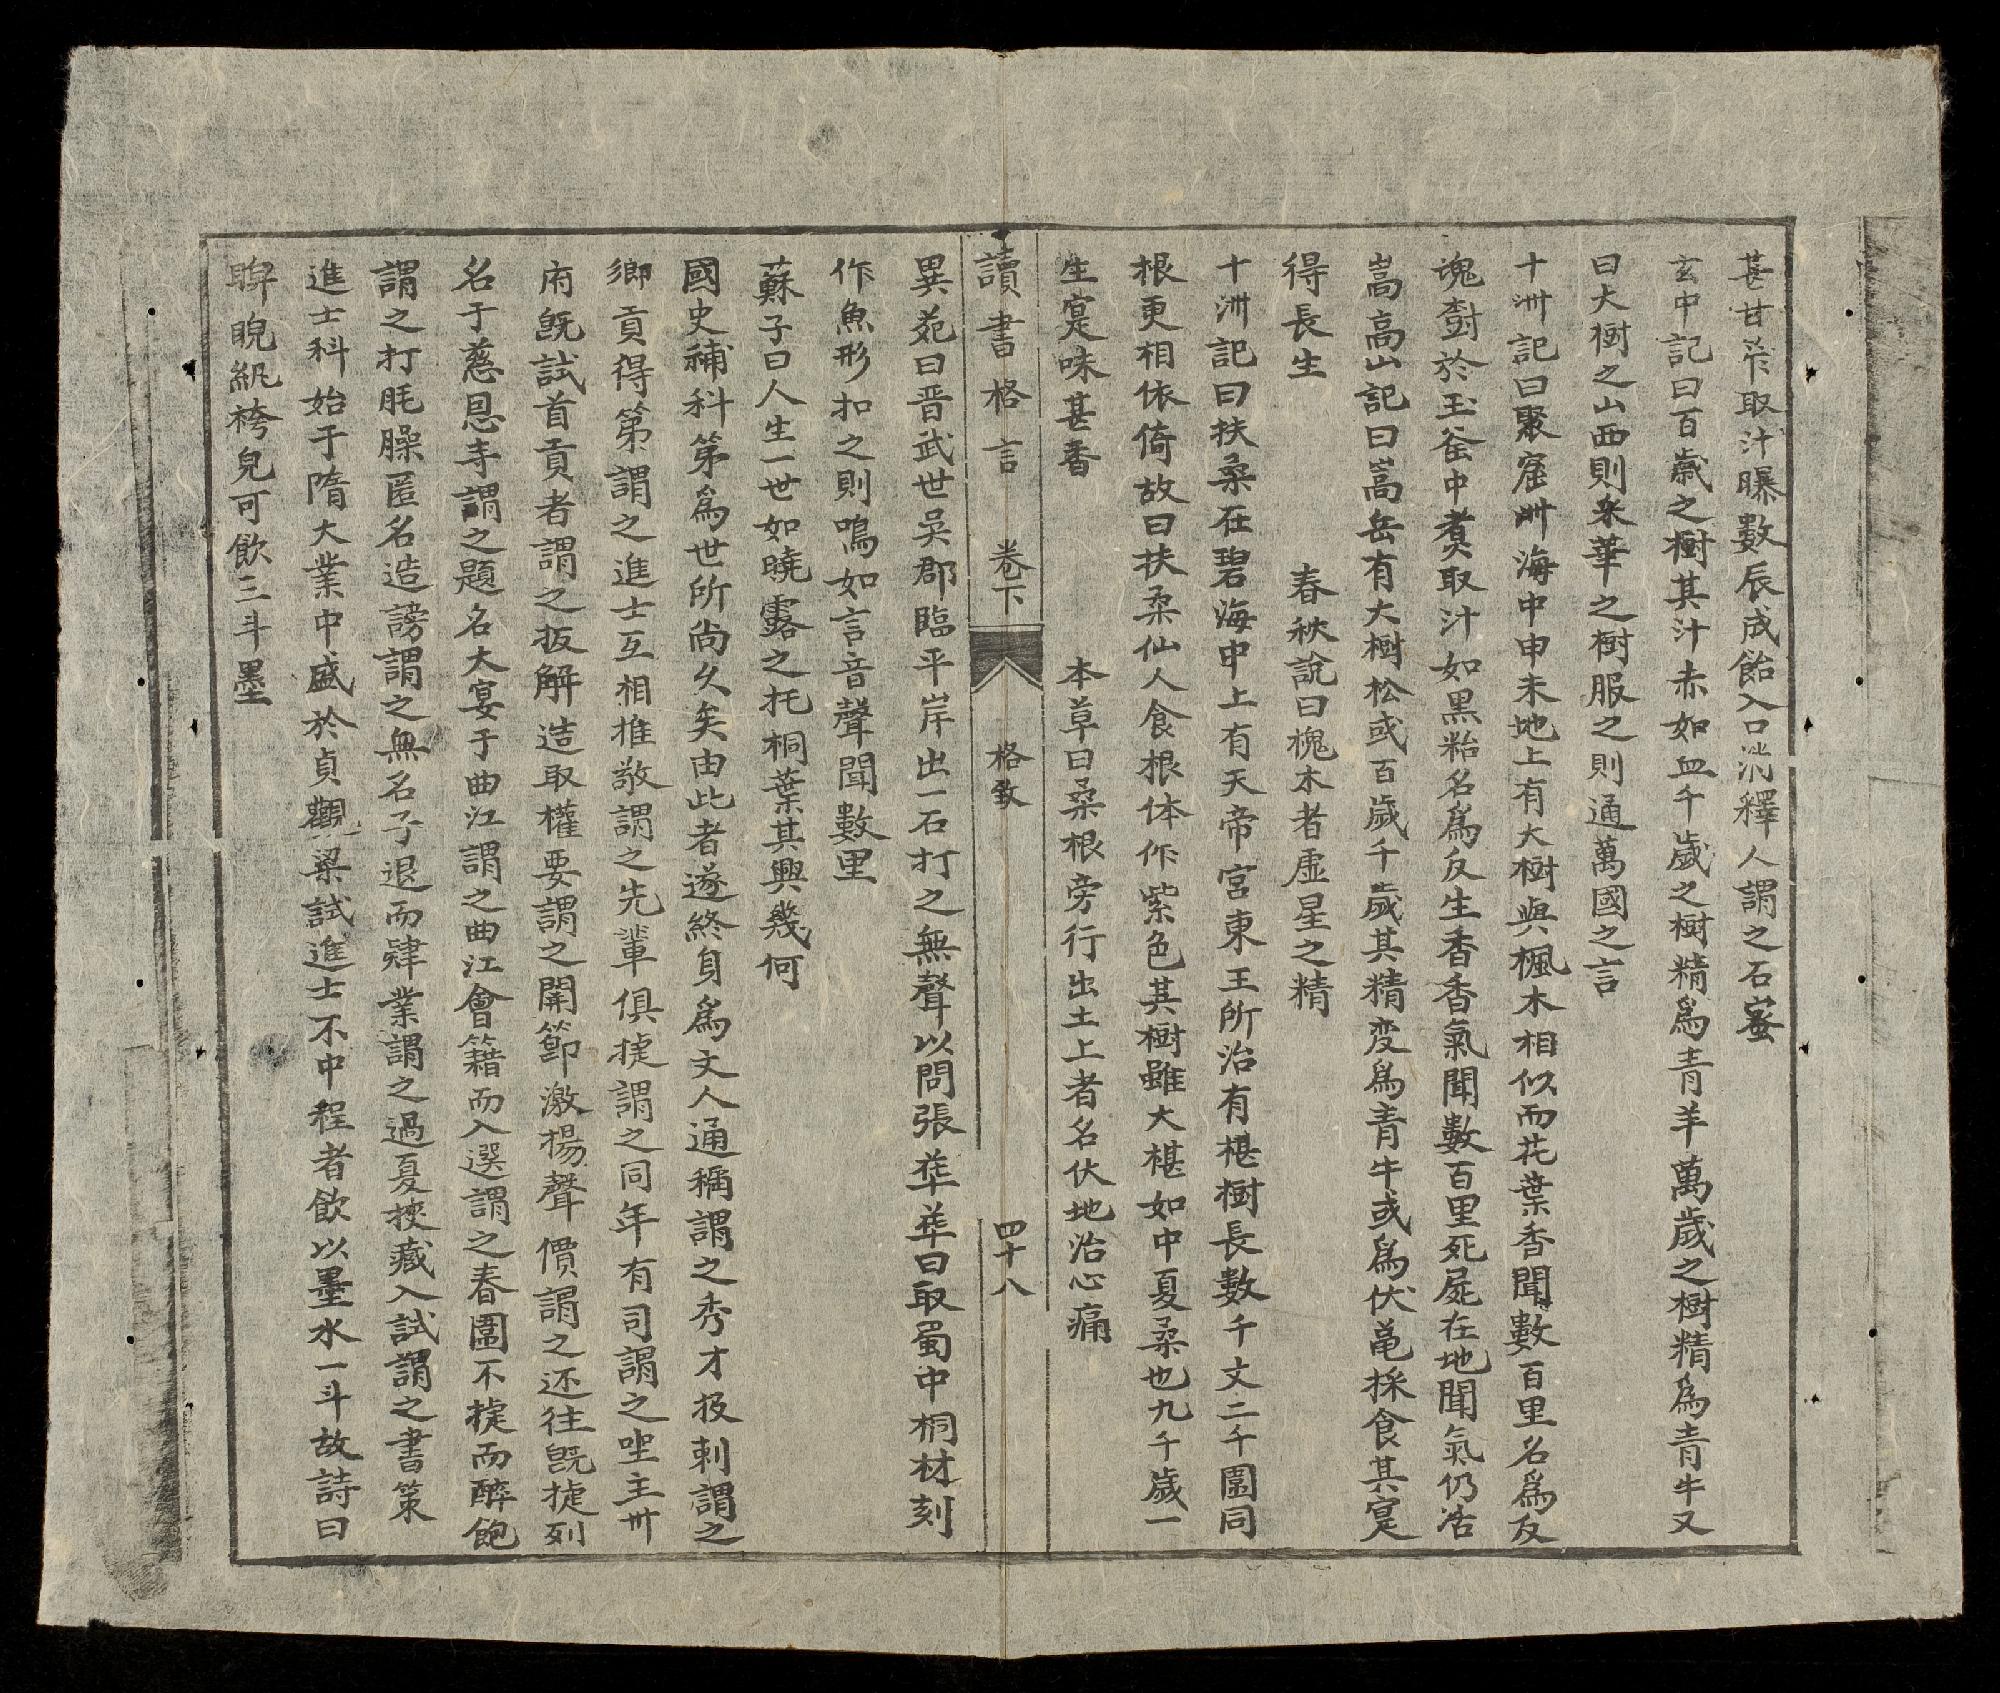 甚甘笮取汁曝數辰成飴入口消釋人謂之石蜜
玄中記曰百歲之樹其汁赤如血千歲之樹精爲青羊萬歲之樹精爲青牛又
曰大樹之山西則采華之樹服之則通萬國之言
十洲記曰聚窟洲海中申未地上有大樹與楓木相似而花葉香聞數百里名爲反
魂樹於玉釜中煮取汁如黑粘名爲反生香香氣聞數百里死屍在地聞氣仍活
嵩高山記曰嵩岳有大樹松或百歲千歲其精変爲青牛或爲伏亀採食其寔
得長生　春秋說曰槐木者虛星之精
十洲記曰扶桑在碧海中上有天帝宮東王所治有椹樹長數千丈二千圍同
根更相依倚故曰扶桑仙人食根体作紫色其樹雖大椹如中夏桑也九千歲一
生寔味甚香　本草曰桑根旁行出土上者名伏地治心痛
讀書格言　卷下　格致　四十八
異苑曰晋武世吳郡臨平岸出一石打之無聲以問張華華曰取蜀中桐材刻
作魚形扣之則鳴如言音聲聞數里
蘇子曰人生一世如曉露之托桐葉其興幾何
國史補科第爲世所尚久矣由此者遂終身爲文人通稱謂之秀才投刺謂之
鄉貢得第謂之進士互相推敬謂之先輩俱捷謂之同年有司謂之坐主卅
府旣試首貢者謂之扳解造取權要謂之開節激揚聲價謂之还往旣捷列
名于慈恩寺謂之題名大宴于曲江謂之曲江會籍而入選謂之春圍不捷而醉飽
謂之打毷臊匿名造謗謂之無名子退而肄業謂之過夏挾藏入試謂之書策
進士科始于隋大業中盛於貞觀梁試進士不中程者飲以墨水一斗故詩曰
睥睨紈袴兒可飲三斗墨